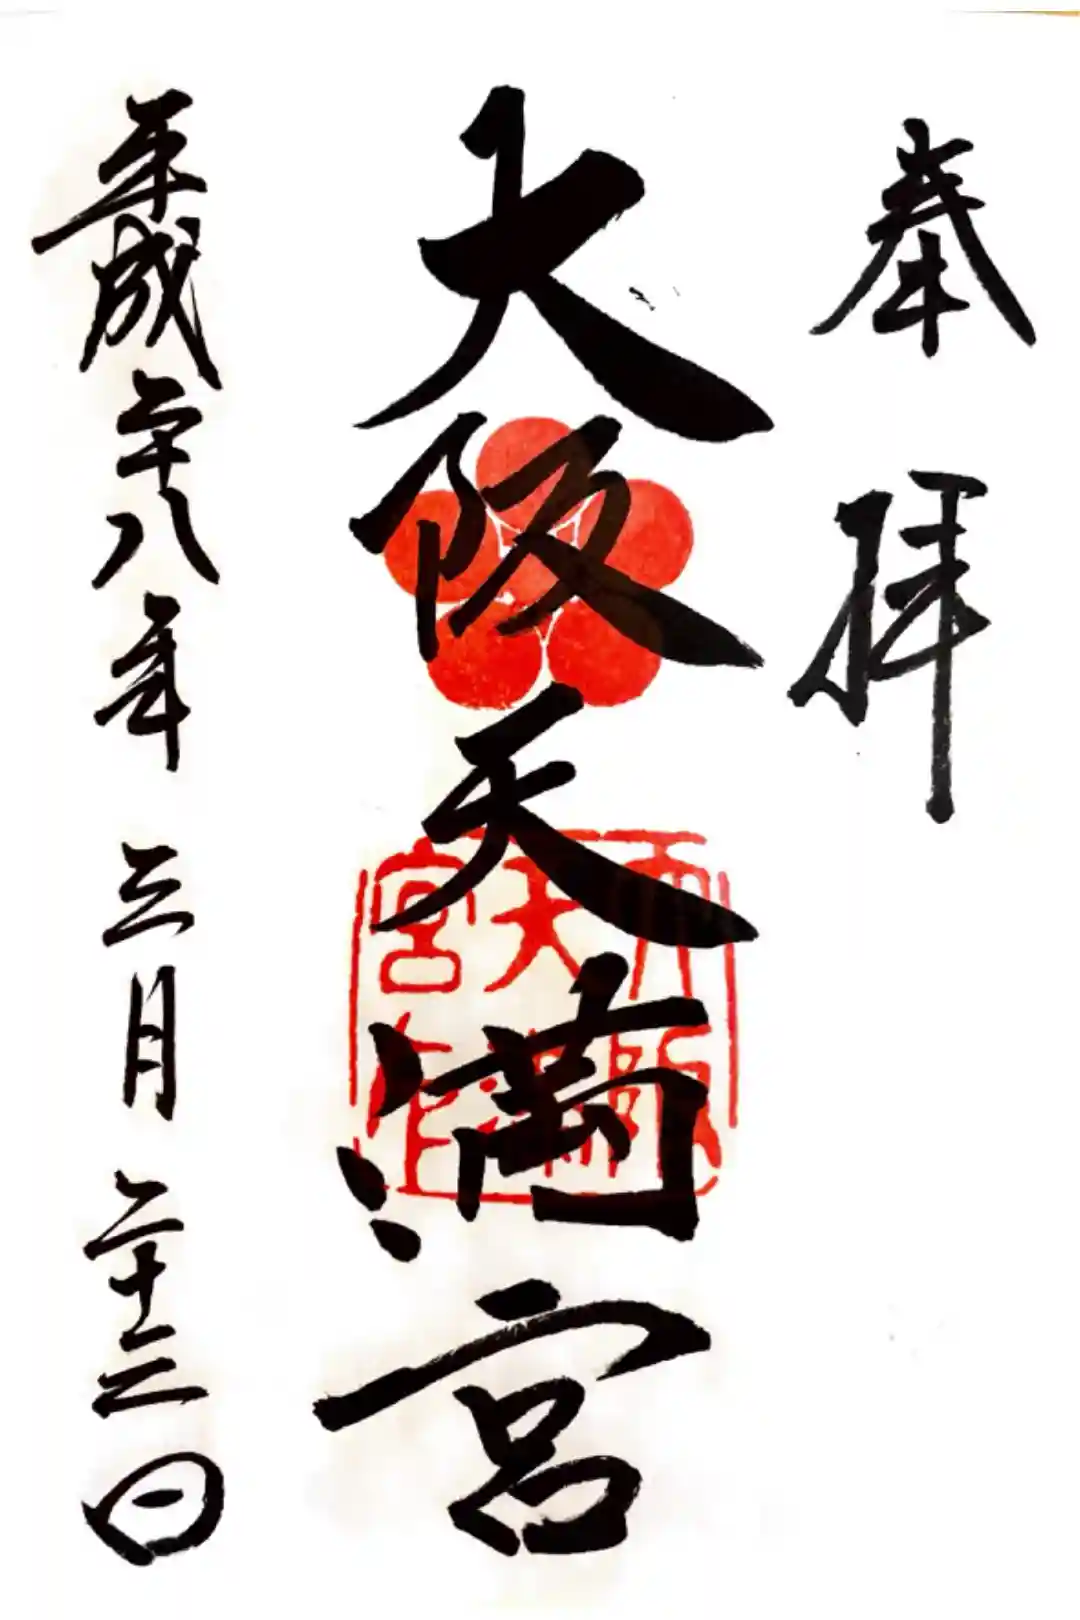 奉拝
大阪天満宮
平成二十八年三月二十三日
大阪天満宮